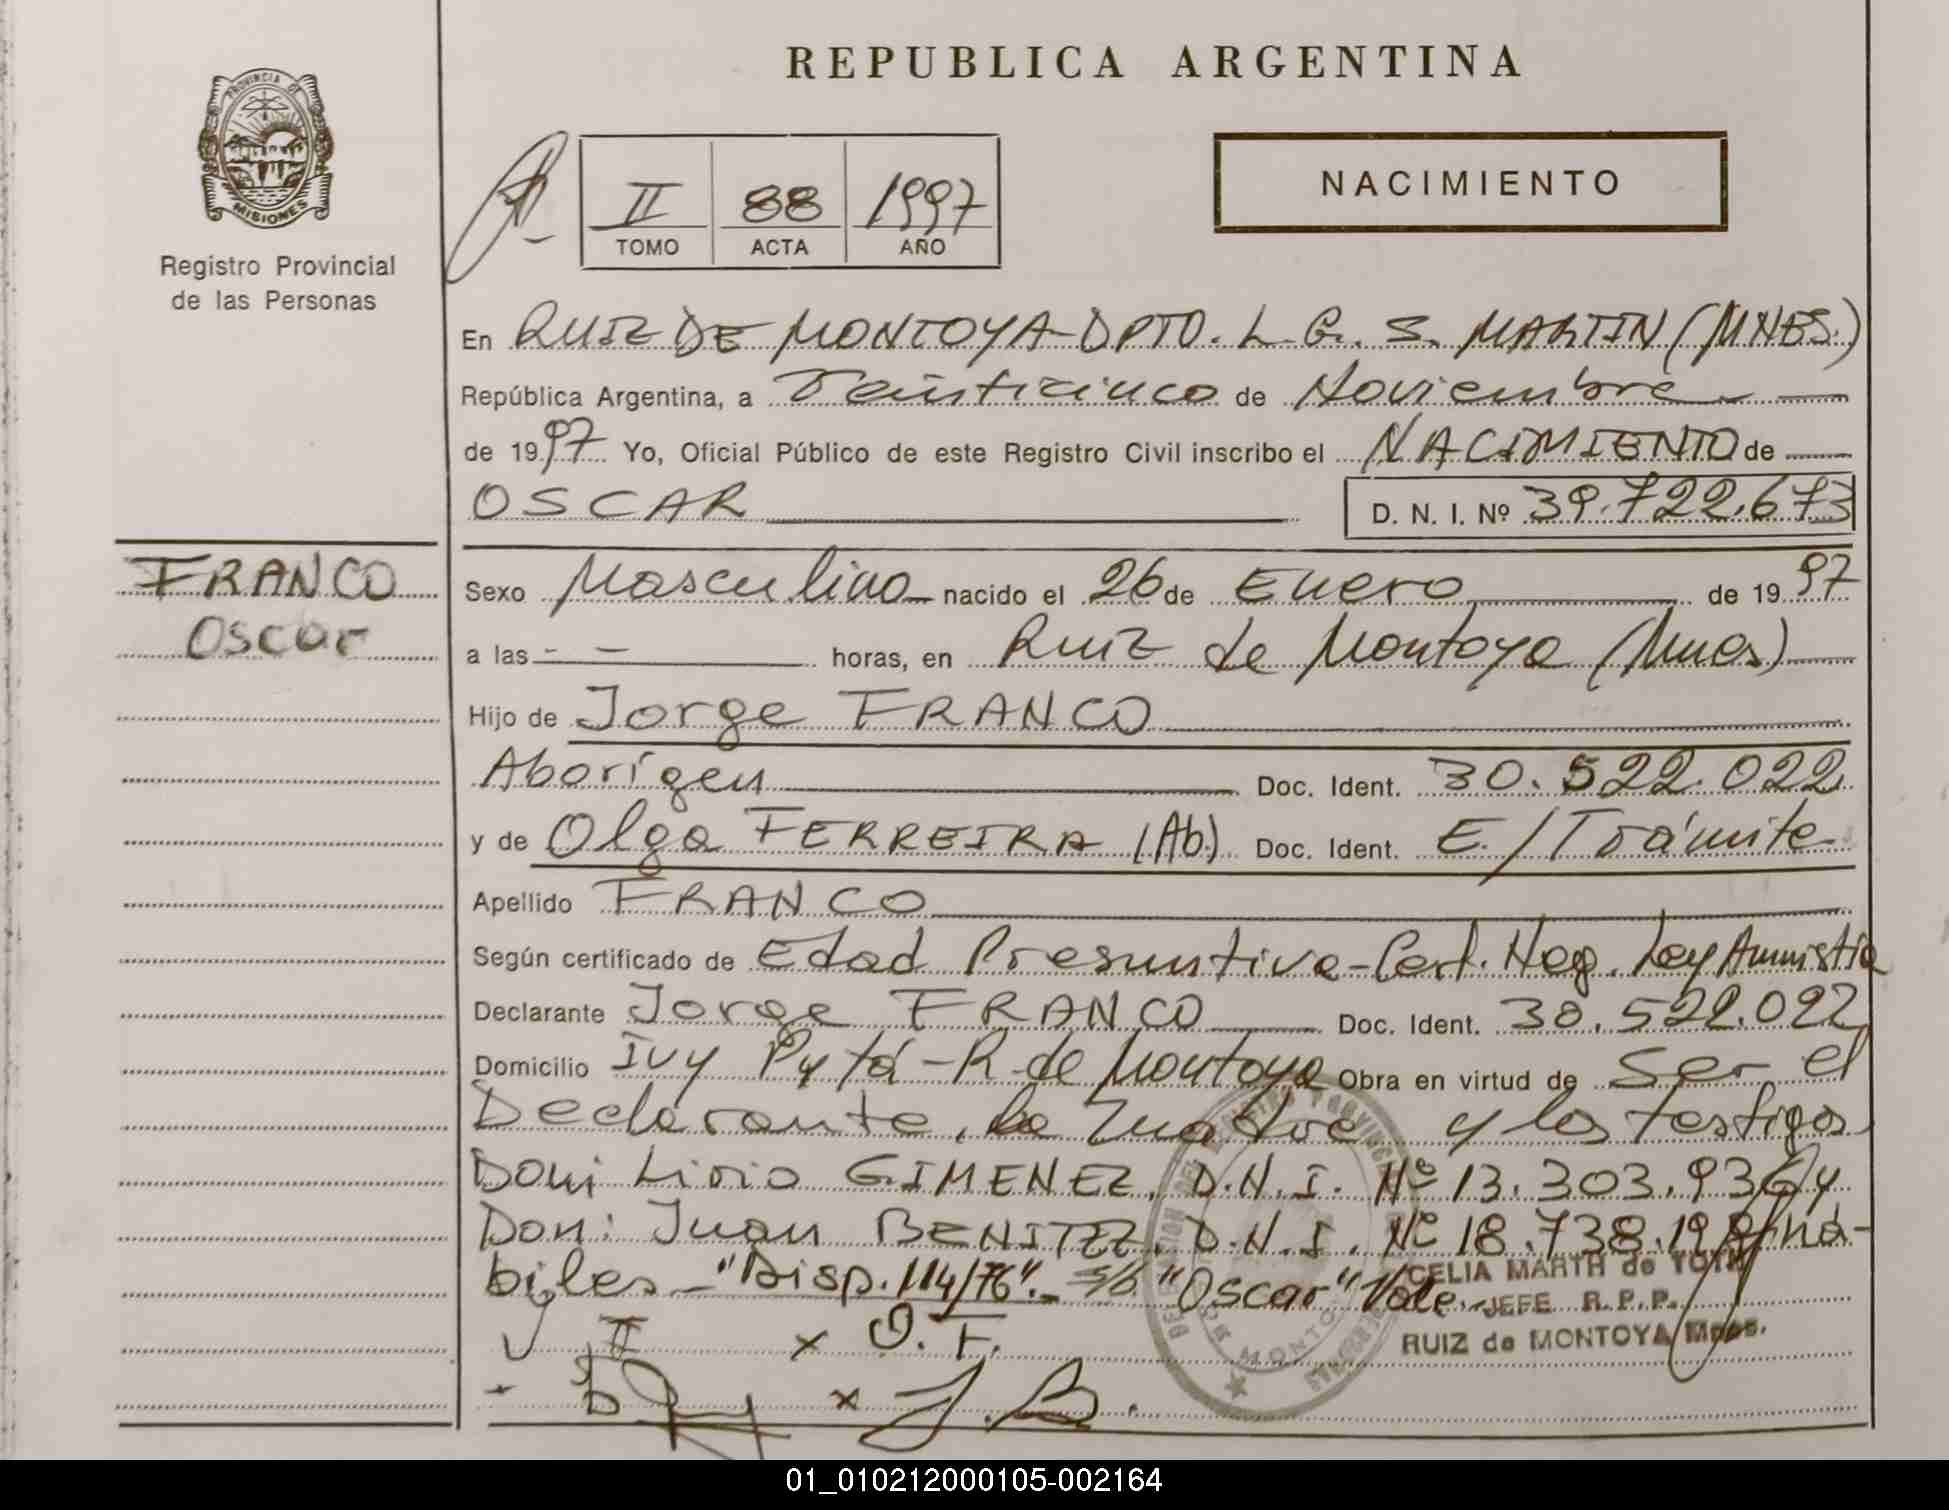 REPUBLICA ARGENTINA
PROVINCIA DE
MISIONES
Registro Provincial
de las Personas
II 88 1997
TOMO ACTA AÑO
NACIMIENTO
En RUIZ DE MONTOYA-DPTO. L. G. S. MARTIN (MNES.)
República Argentina, a Veinticinco de Noviembre
de 1997 Yo, Oficial Público de este Registro Civil inscribo el NACIMIENTO de
OSCAR D. N. I. Nº 39.722.673
FRANCO
Oscar
Sexo Masculino nacido el 26 de Enero de 1997
a las - - horas, en Ruiz de Montoya (Mnes)
Hijo de Jorge FRANCO
Aborígen Doc. Ident. 30.522.022
y de Olga FERREIRA (Ab.) Doc. Ident. E./Trámite
Apellido FRANCO
Según certificado de Edad Presuntiva-Cert. Neg. Ley Amnistia
Declarante Jorge FRANCO Doc. Ident. 30.522.022
Domicilio Ivy Pytá-R. de Montoya Obra en virtud de Ser el
Declarante, la Madre y los testigos
Don: Lirio GIMENEZ, D.N.I. Nº 13.303.936 y
Don: Juan BENITEZ, D.N.I. Nº 18.738. há-
biles-"Disp. 114/76".- S/b "Oscar" Vale.-
CELIA MARTH de TOTH
JEFE R.P.P.
RUIZ de MONTOYA Mnes.
x O. F.
x J. B.
MONTOYA
01_010212000105-002164